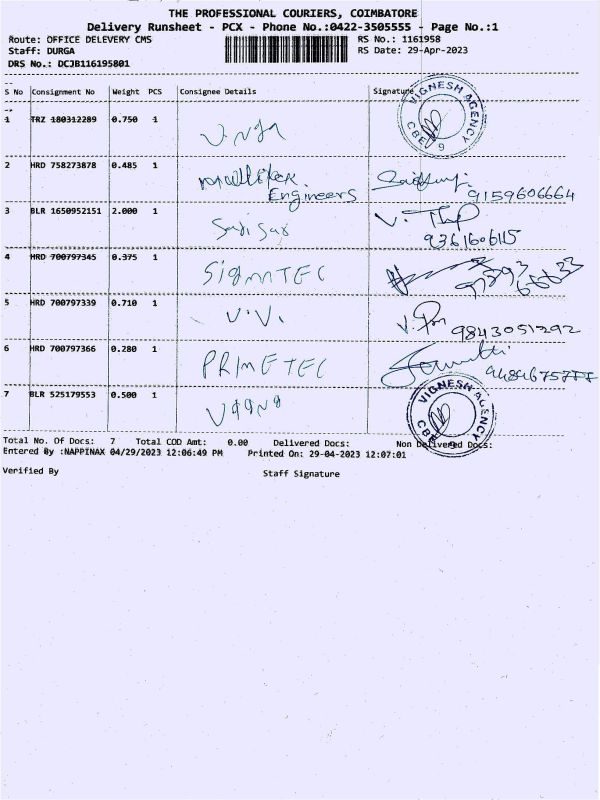 THE PROFESSIONAL COURIERS, COIMBATORE
Delivery Runsheet - PCX - Phone No.:0422-3505555 - Page No.:1
Route: OFFICE DELEVERY CMS RS No.: 1161958
Staff: DURGA RS Date: 29-Apr-2023
DRS No.: DCJB116195801
S No Consignment No Weight PCS Consignee Details Signature
1 TRZ 180312289 0.750 1
VIGNESH AGENCY CBE 9
2 HRD 758273878 0.485 1
Engineers 9159606664
3 BLR 1650952151 2.000 1
9361606115
4 HRD 700797345 0.375 1 SIGMTEC
5 HRD 700797339 0.710 1 V.V. 9843051292
6 HRD 700797366 0.280 1 PRIMETEC
7 BLR 525179553 0.500 1
VIGNESH AGENCY CBE 9
Total No. Of Docs: 7 Total COD Amt: 0.00 Delivered Docs: Non Delivered Docs:
Entered By :NAPPINAX 04/29/2023 12:06:49 PM Printed On: 29-04-2023 12:07:01
Verified By Staff Signature